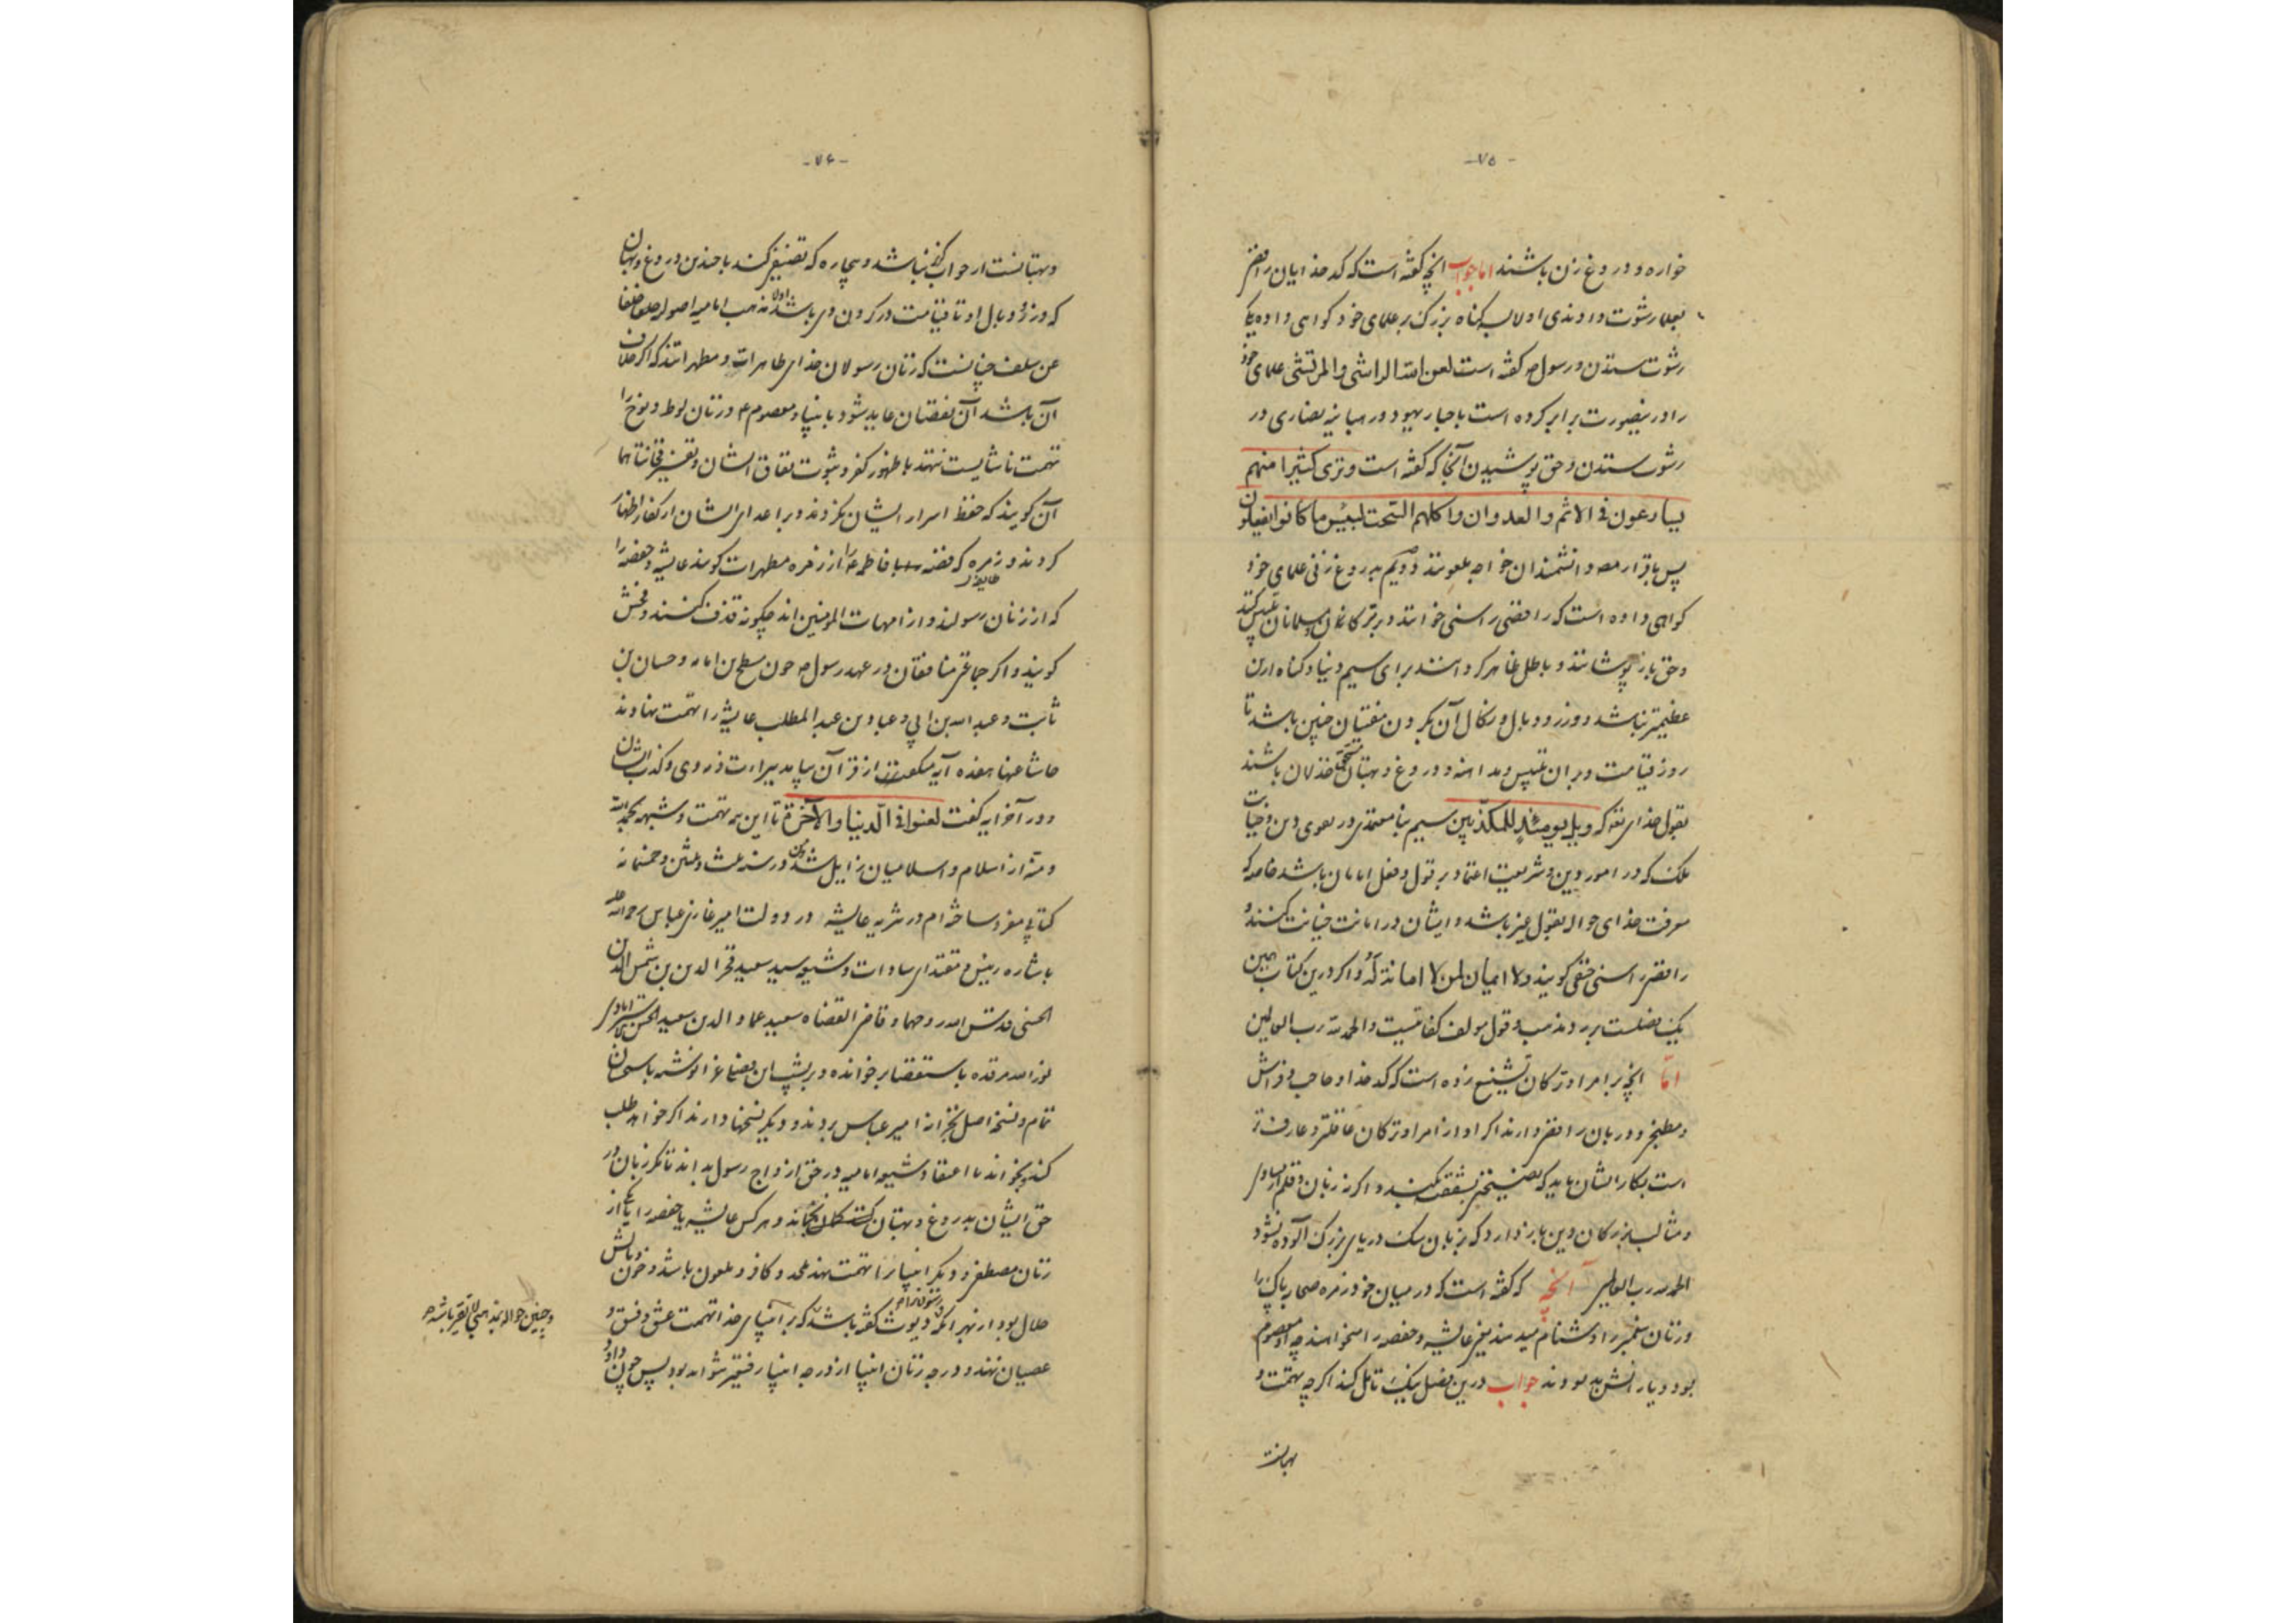 -۷۵-
خواره و دروغ زن باشند اما جواب انچه کفته است که کدخدایان رافضی
بعلما رشوت دادندی اولا بکناه بزرک بر علمای خود کواهی داده یکی
رشوت ستدن و رسول ص کفته است لعن الله الراشی والمرتشی علمای خود
را درینصورت برابر کرده است باحبار یهود و رهبانیه نصاری در
رشوت ستدن و حق پوشیدن آنجا که کفته است وتری کثیرا منهم
یسارعون فی الاثم والعدوان واکلهم السحت لبئس ما کانوا یفعلون
پس باقرار مصـ دانشمندان خواجه ملعونند دویم بدروغ زنی علمای خود
کواهی داده است که رافضی را سنی خوانند و بر ترکان و مسلمانان تلبیس کنند
و حق باز پوشانند و باطل ظاهر کردانند برای سیم دنیا و کناه ازین
عظیمتر نباشد و وزر و وبال و نکال آن بکردن مفتیان چنین باشد تا
روز قیامت و بر ان تلبیس و مداهنه و دروغ و بهتان مستحق خذلان باشند
بقول خدای تع که ویل یومئذ للمکذبین سیم نا معتمدی در دعوی دین و خیانت
ملک که در امور دین و شریعت اعتماد بر قول و فعل امامان باشد خاصه که
معرفت خدای حواله بقول غیر باشد و ایشان در امانت خیانت کنند و
رافضی را سنی حنفی کویند و لا ایمان لمن لا امانة له و اکر درین کتاب همین
یک فصلست بر رد مذهب و قول مولف کفایتست والحمد لله رب العالمین
اما انچه بر امرا و ترکان تشنیع زده است که کدخدا و حاجب و فراش
و مطبخی و دربان رافضی دارند اکر او از امرا و ترکان عاقلتر و عارف تر
است بکار ایشان باید که نصیحتی بشفقت بکند و اکر نه زبان و قلم از مساوی
و مثالب بزرکان دین باز دارد که بزبان سک دریای بزرک آلوده نشود
الحمد لله رب العالمین آنچه که کفته است که در میان خود زمره صحابه پاک را
و زنان پیغمبر را دشنام میدهند یعنی عایشه و حفصه را میخواهند چه او معصوم
بود و یارانش بد بودند جواب درین فصل نیک تامل کند اکر چه بهمت و
بهتانست
-۷۶-
و بهتانست از جواب کزیر نباشد و بیچاره که تصنیفی کند با چندین دروغ و بهتان
که وزر و وبال او تا قیامت در کردن وی باشد اولا مذهب امامیه اصولیه خلفا
عن سلف چنانست که زنان رسولان خدای طاهرات و مطهراتند که اکر خلاف
آن باشد آن نقصان عاید شود بانبیا و معصوم ع و زنان لوط و نوح را
تهمت ناشایست ننهند با ظهور کفر و ثبوت نفاق ایشان و تفسیر فخانتاهما
آن کویند که حفظ اسرار ایشان نکردند و بر اعدای ایشان از کفار اظهار
کردند و زمره که فضه جاریه فاطمه ع را از زمره مطهرات کویند عایشه و حفصه را
که از زنان رسولند و از امهات المومنین اند چکونه قذف کنند و فحش
کویند و اکر جماعتی منافقان در عهد رسول ص چون مسطح بن اثاثه و حسان بن
ثابت و عبد الله بن ابی و عباد بن عبد المطلب عایشه را تهمت نهادند
حاشا عنها هفده آیه از قرآن بیامد ببراءت ذر وی و کذب ایشان
و در آخر آیه کفت لعنوا فی الدنیا والآخرة تا این همه تهمت و شبهه بحمد الله
و منه از اسلام و اسلامیان زایل شد و من در سنه ثلث و ثلثین و خمسمائه
کتابی مفرد ساخته ام در تنزیه عایشه در دولت امیر غازی عباس رحمة الله علیه
باشاره رئیس و مقتدای سادات و شیعه سید سعید فخر الدین بن شمس الدین
الحسنی قدس الله روحهما و قاضی القضاه سعید عماد الدین سعید الحسن استرابادی
نور الله مرقده باستقصا برخوانده و بر پشت این فصلی غرا نوشته باستحسان
تمام و نسخه اصل بخزانه امیر عباس بردند و دیکر نسخها دارند اکر خواهد طلب
کند و بخواند تا اعتقاد شیعه امامیه در حق ازواج رسول بداند تا مکر زبان در
حق ایشان بدروغ و بهتان نجنباند و هر کس عایشه یا حفصه را یا یکی از
زنان مصطفی و دیکر انبیا را تهمت نهند ملحد و کافر و ملعون باشد و خون و مالش
حلال بود از بهر آنکه دیوث کفته باشد که بر انبیای خدا تهمت عشق و فسق و
عصیان نهند و درجه زنان انبیا از درجه انبیا رفیعتر نتواند بود پس چون داود
و چنین حواله بمذهبی لایقتر باشد